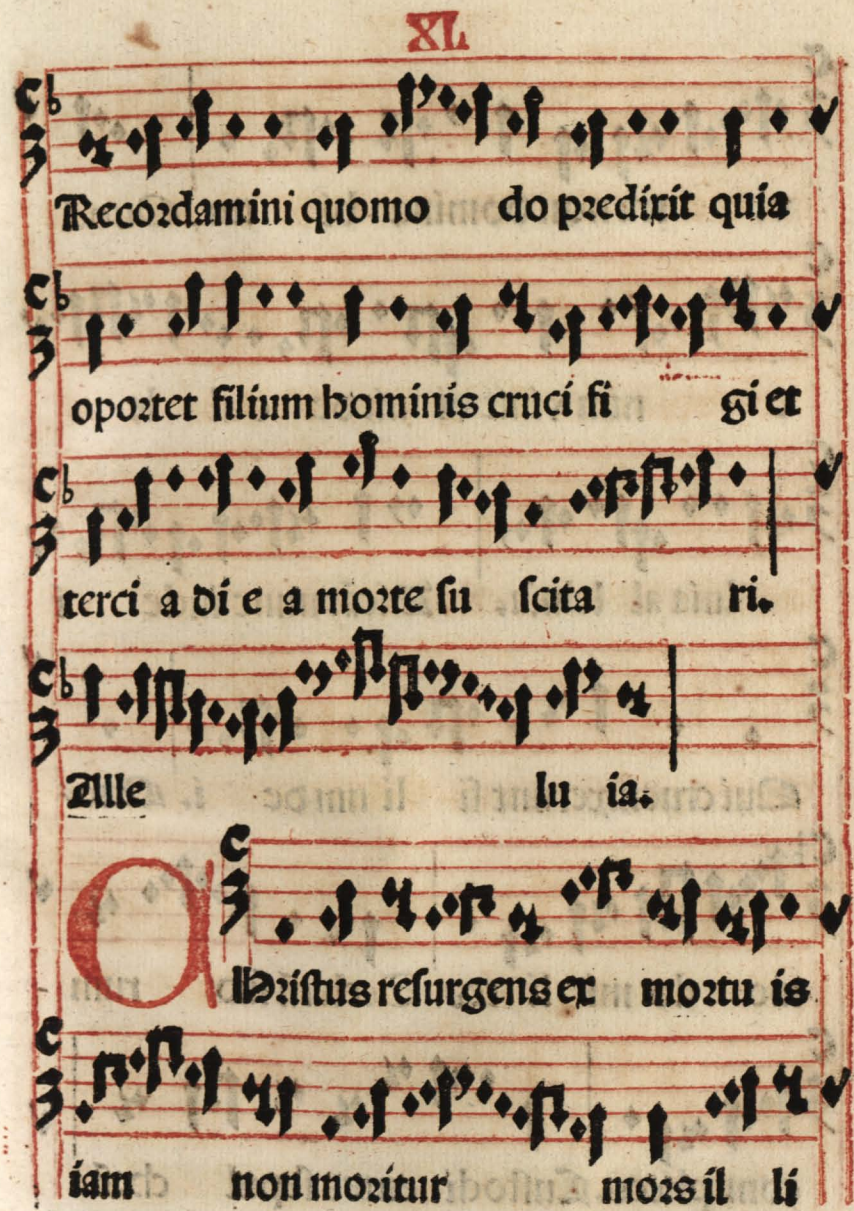 XL
Recordamini quomo do predixit quia
oportet filium hominis cruci fi gi et
terci a di e a morte su scita ri.
Alle lu ia.
Christus resurgens ex mortu is
iam non moritur mors il li